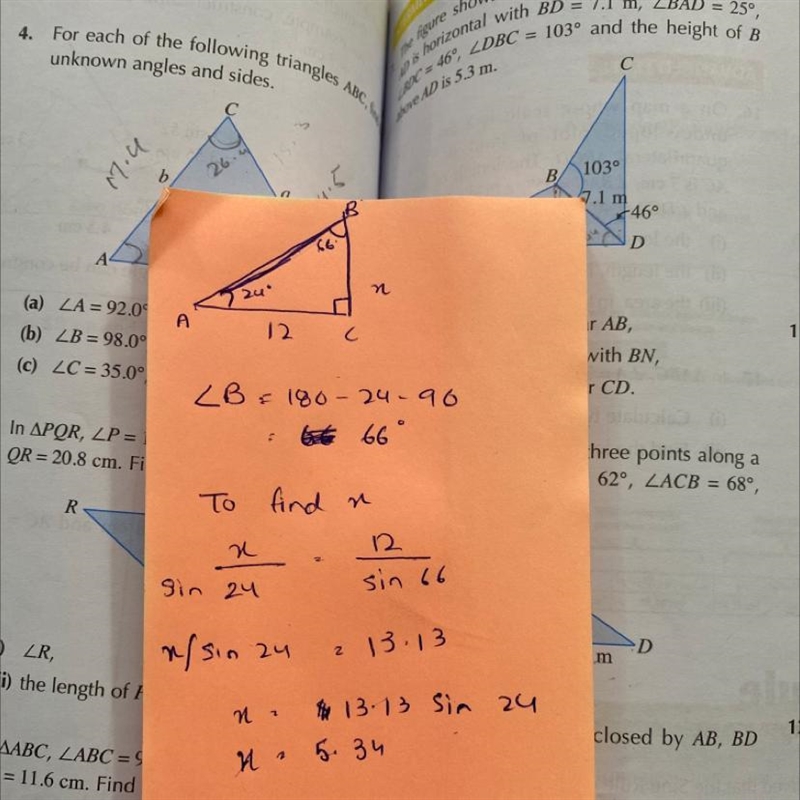 4. For each of the following triangles ABC,
unknown angles and sides.
C
b
26.4
A
(a) ∠A = 92.0°
(b) ∠B = 98.0°
(c) ∠C = 35.0°
In ΔPQR, ∠P =
QR = 20.8 cm.
R
∠R,
the length of
ΔABC, ∠ABC =
= 11.6 cm. Find
The figure
AD is horizontal with BD = 7.1 m, ∠BAD = 25°,
∠BDC = 46°, ∠DBC = 103° and the height of B
above AD is 5.3 m.
C
B
103°
7.1 m
46°
D
AB,
with BN,
CD.
three points along a
62°, ∠ACB = 68°,
D
m
closed by AB, BD
B
66°
24°
x
A
12
C
∠B = 180 - 24 - 90
= 66°
To find x
x/sin 24 = 12/sin 66
x/sin 24 = 13.13
x = 13.13 sin 24
x = 5.34